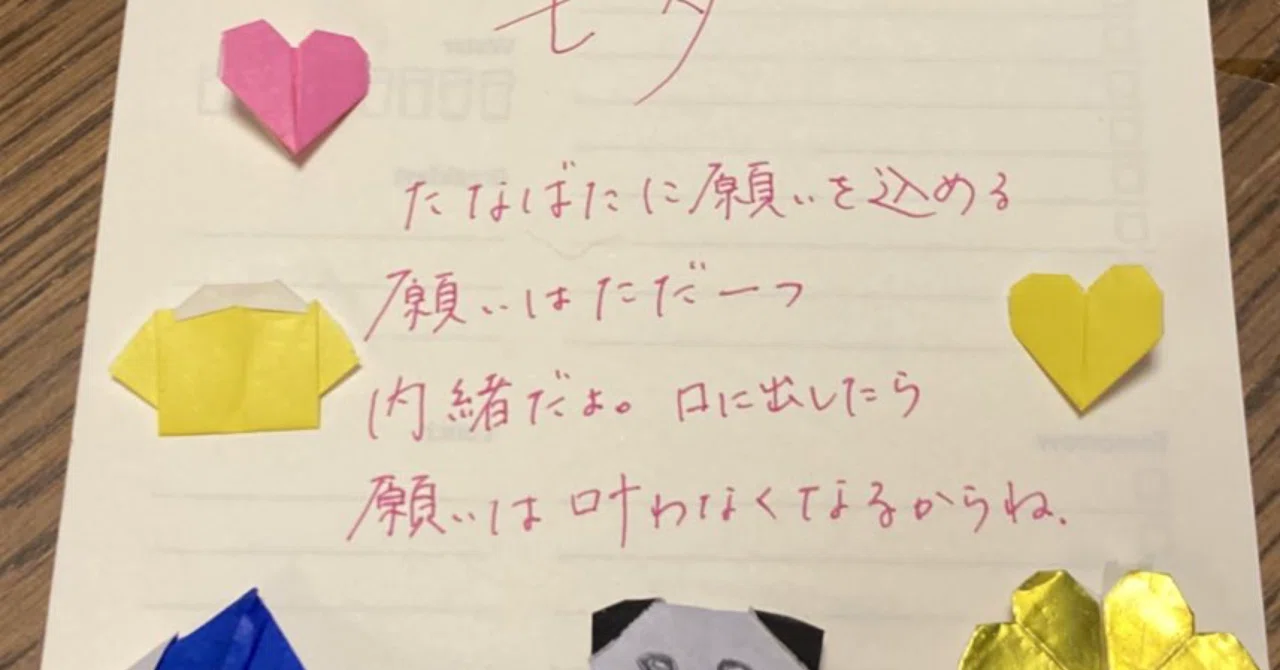 七夕
たなばたに願いを込める
願いはただ一つ
内緒だよ。口に出したら
願いは叶わなくなるからね.